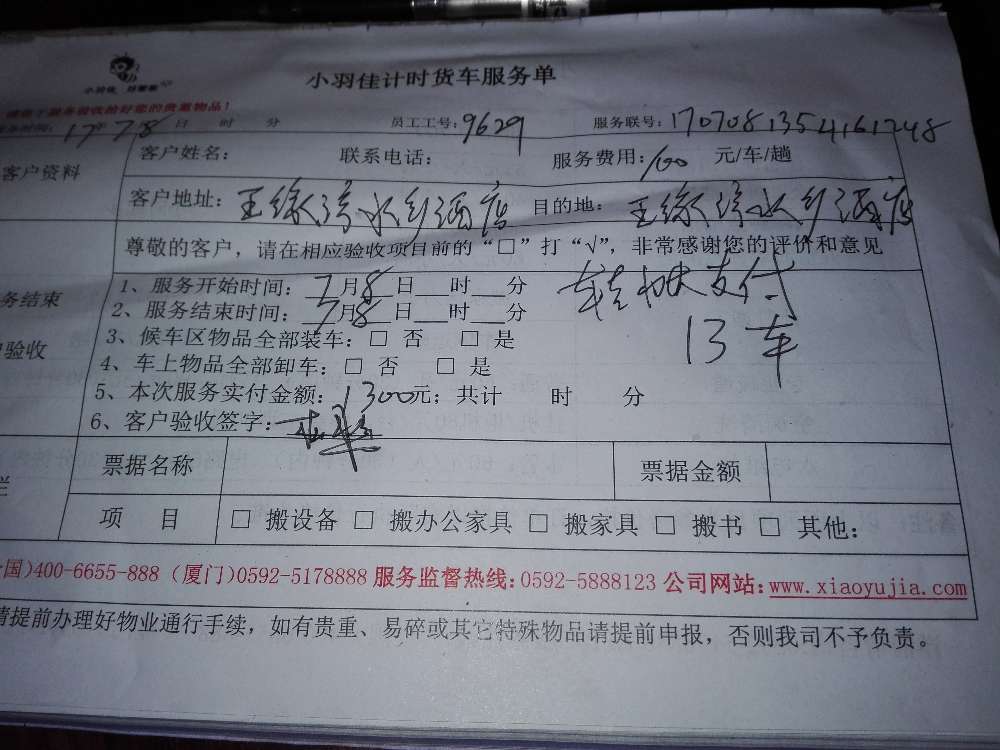 小羽佳计时货车服务单
小羽佳 好帮家
服务验收前好您的贵重物品！
时间：17年7月8日 时 分 员工工号：9629 服务联号：1707081354161248
客户资料 客户姓名： 联系电话： 服务费用：100 元/车/趟
客户地址： 水乡酒店 目的地： 水乡酒店
尊敬的客户，请在相应验收项目前的“□”打“√”，非常感谢您的评价和意见
务结束
户验收
1、服务开始时间：7月8日___时___分
2、服务结束时间：7月8日___时___分
3、候车区物品全部装车：□ 否 □ 是
4、车上物品全部卸车：□ 否 □ 是
5、本次服务实付金额：1300元；共计 时 分
6、客户验收签字：
支付
13车
栏 票据名称 票据金额
项 目 □ 搬设备 □ 搬办公家具 □ 搬家具 □ 搬书 □ 其他：
国)400-6655-888 (厦门)0592-5178888 服务监督热线：0592-5888123 公司网站：www.xiaoyujia.com
请提前办理好物业通行手续，如有贵重、易碎或其它特殊物品请提前申报，否则我司不予负责。